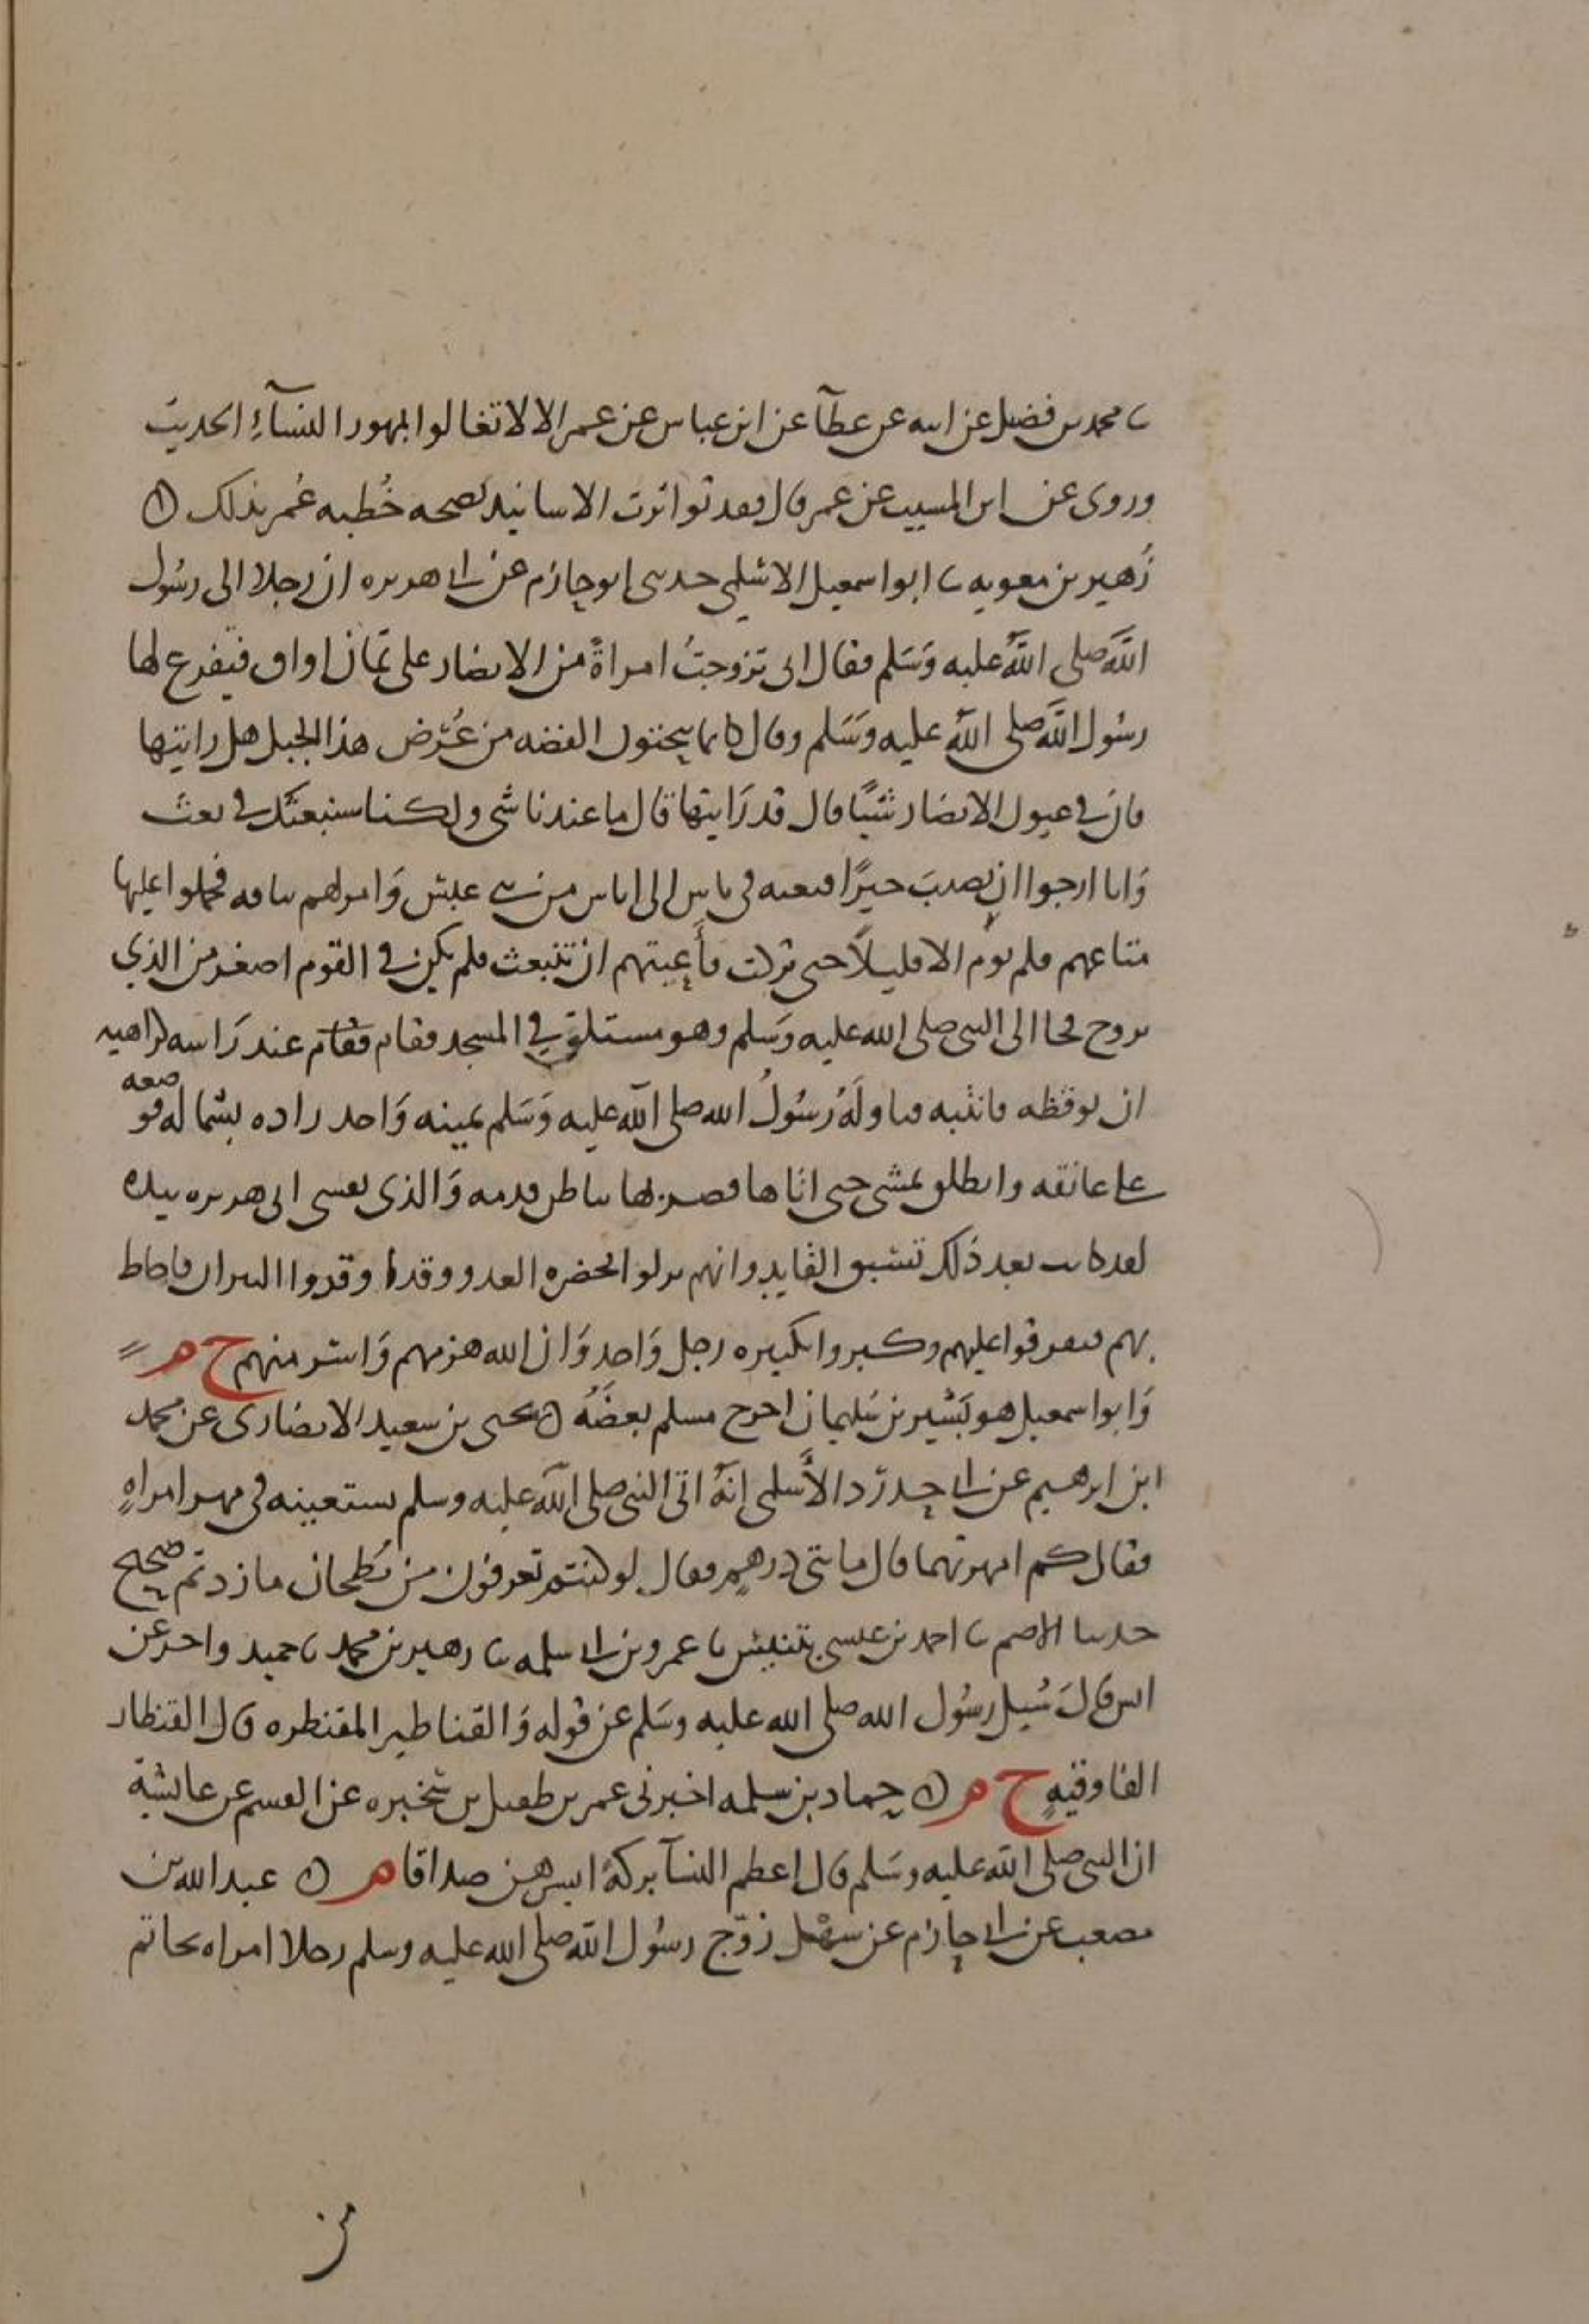 ثنا محمد بن فضيل عن ابيه عن عطآ عن ابن عباس عن عمر الا لا تغالوا بمهور النسآءِ الحديث
وروى عن ابن المسيب عن عمر قال فقد تواترت الاسانيد بصحه خُطبه عُمر بذلك ه
زُهير بن معويه ثنا ابو اسمعيل الاسلمي حدثني ابو حازم عن ابي هريره ان رجلا اتى رسُول
اللَّه صلى اللَّه عليه وَسَلم فقال اني تزوجتُ امراةً من الانصار على ثمان اواق فتفزع لها
رسُول اللَّه صلى اللَّه عليه وسَلم وقال كانما ينحتون الفضه من عُرْض هذا الجبل هل رايتها
فان في عيون الانصار شيًا قال قد رَايتها قال ما عندنا شي ولكنا سنبعثك في بعث
وَانا ارجوا ان نصيبَ خيرًا فبعثه في ناس الى اناس من بني عبس وَامر لهم بناقه فحملوا عليها
متاعهم فلم ترم الا قليلًا حتى بركت فأعيتهم ان تنبعث فلم يكن في القوم اصغر من الذي
تزوج فجا الى النبي صلى الله عليه وَسَلم وهو مستلقٍ في المسجد فقام فقام عند رَاسه كراهيه
ان يوقظه فانتبه فناولَهُ رسُولُ الله صلى اللَّه عليه وَسَلم يمينه وَاخذ رداه بشماله فوضعه
على عاتقه وانطلق يمشي حتى اتاها فضربها بباطن قدمه وَالذي نفس ابي هريره بيده
لقد كانت بعد ذلك تسبق القايد وانهم نزلوا بحضره العدو وقد اوقدوا النيران فاحاط
بهم فتفرقوا عليهم وكبروا تكبيره رجل وَاحد وَان الله هزمهم وَاسر منهم خ م
وَابو اسمعيل هو بَشير بن سَليمان اخرج مسلم بعضَهُ ه يحيى بن سعيد الانصارى عن محمد
ابن ابرهيم عن ابي حدرَد الأَسلمي انهُ اتى النبي صلى اللَّه عليه وسلم يستعينه في مهر امراهٍ
فقال كم امهرتها قال مايتي درهمٍ فقال لو كنتم تغرفون من بُطحان ما زدتم صحيح
حدثنا الاصم ثنا احمد بن عيسى بتنيس ثنا عمرو بن ابي سلمه ثنا زهير بن محمد ثنا حميد واخر عن
انس قالَ سُيل رسُول الله صلى الله عليه وسَلم عن قوله وَالقناطير المقنطره قال القنطار
الفا وقيهٍ خ م ه حماد بن سلمه اخبرني عمر بن طفيل بن سَخبره عن القسم عن عايشة
ان النبي صلى اللَّه عليه وسَلم قال اعظم النسآ بركةً ايسرهن صداقا م ه عبد الله بن
مصعب عن ابي حازم عن سهل زوّج رسُول اللَّه صلى الله عليه وسلم رجلا امراه بخاتم